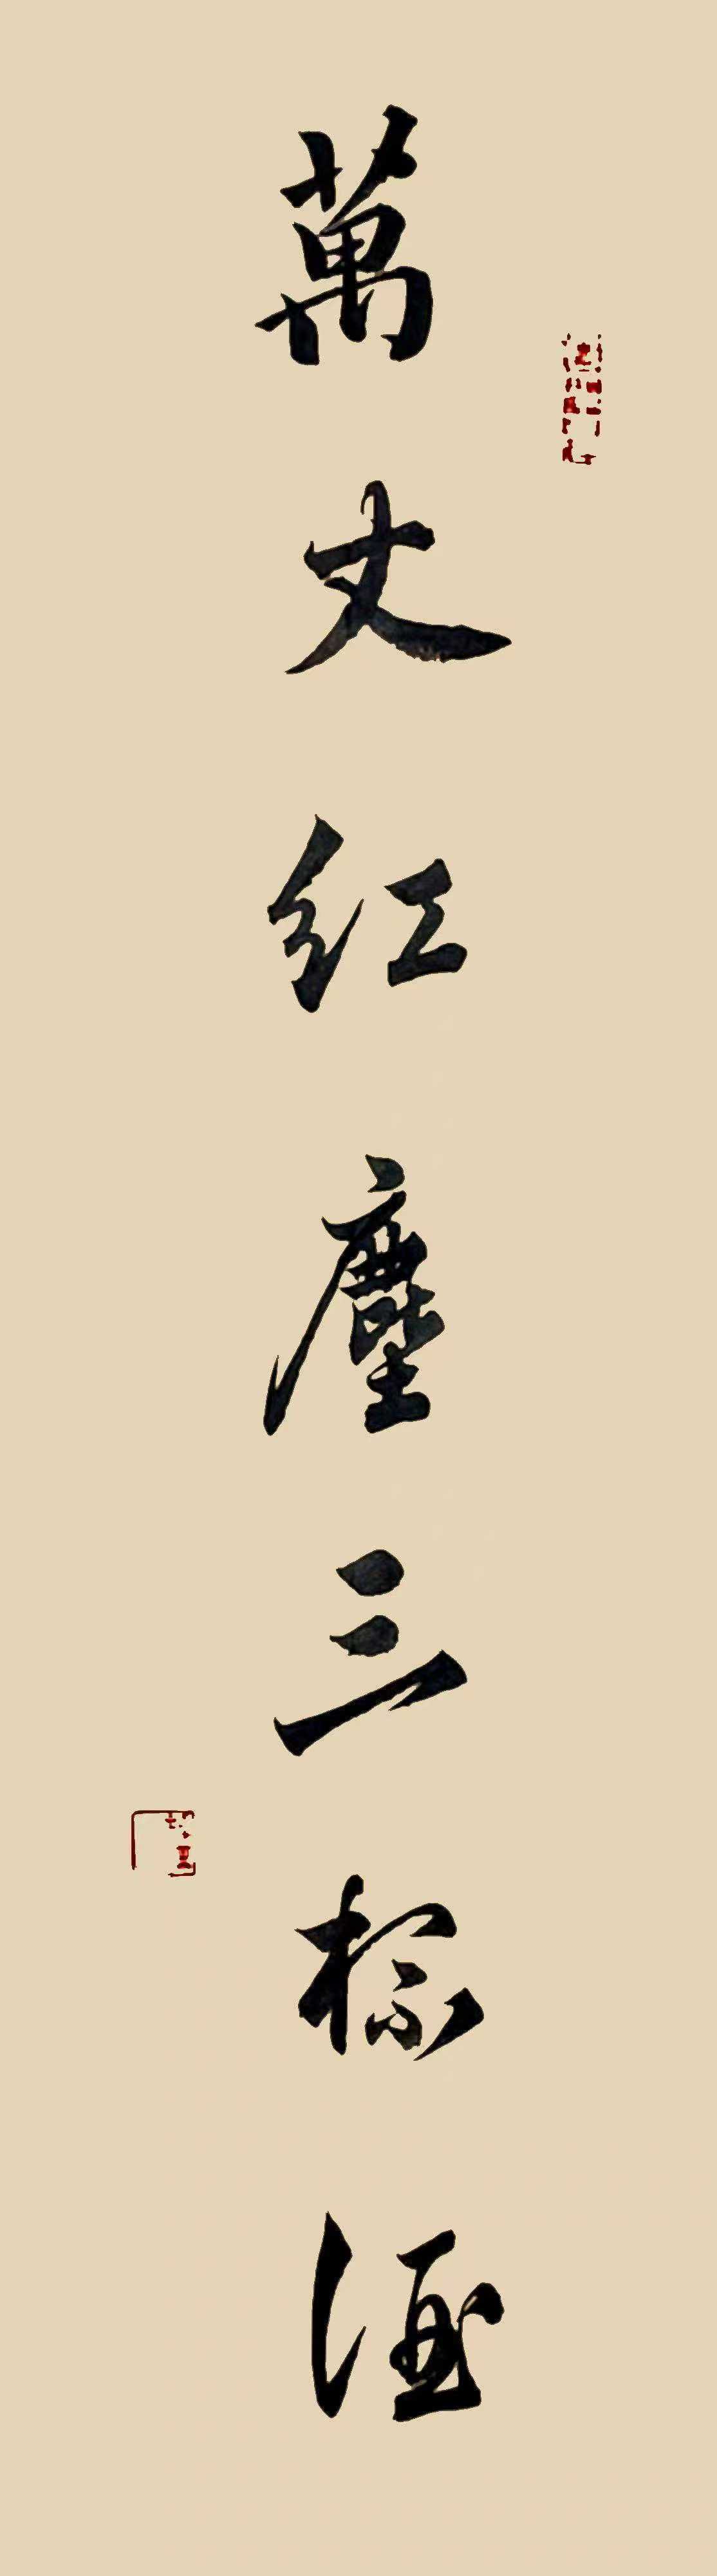 萬丈红塵三杯酒